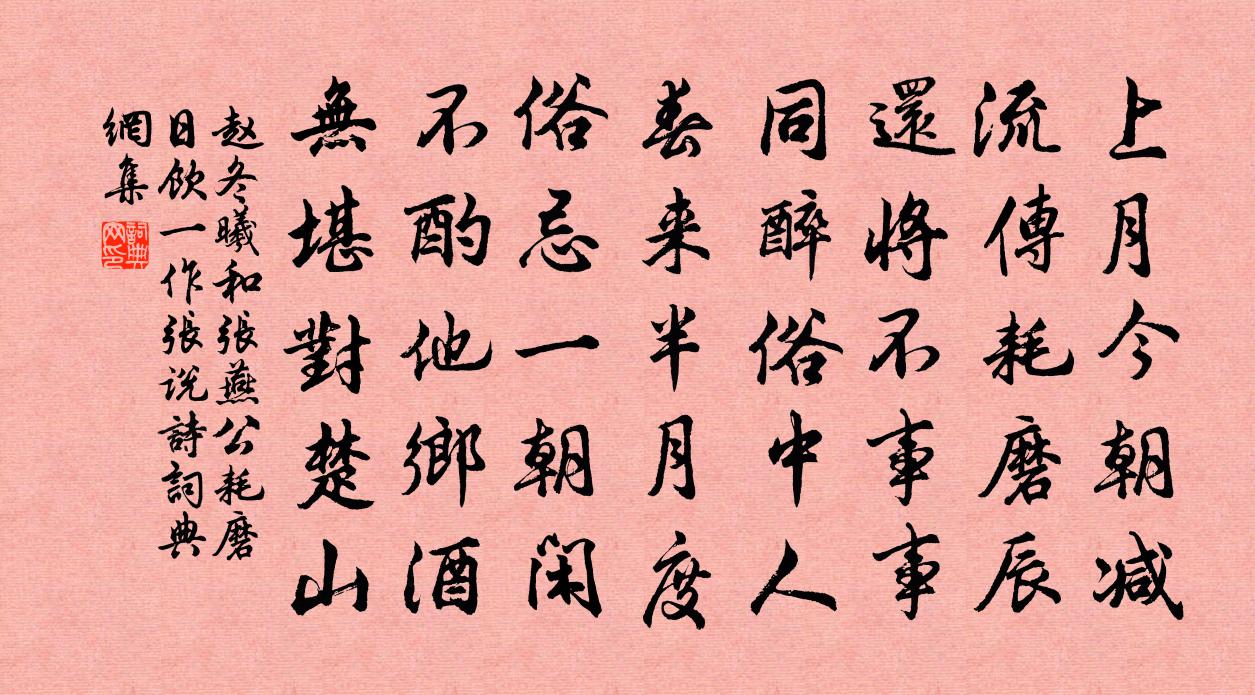 上月今朝减
流傳耗磨辰
還將不事事
同醉俗中人
春来半月度
俗忌一朝闲
不酌他鄉酒
無堪對楚山
赵冬曦和張燕公耗磨
日飲一作張说詩詞典
網集
詞典
网印